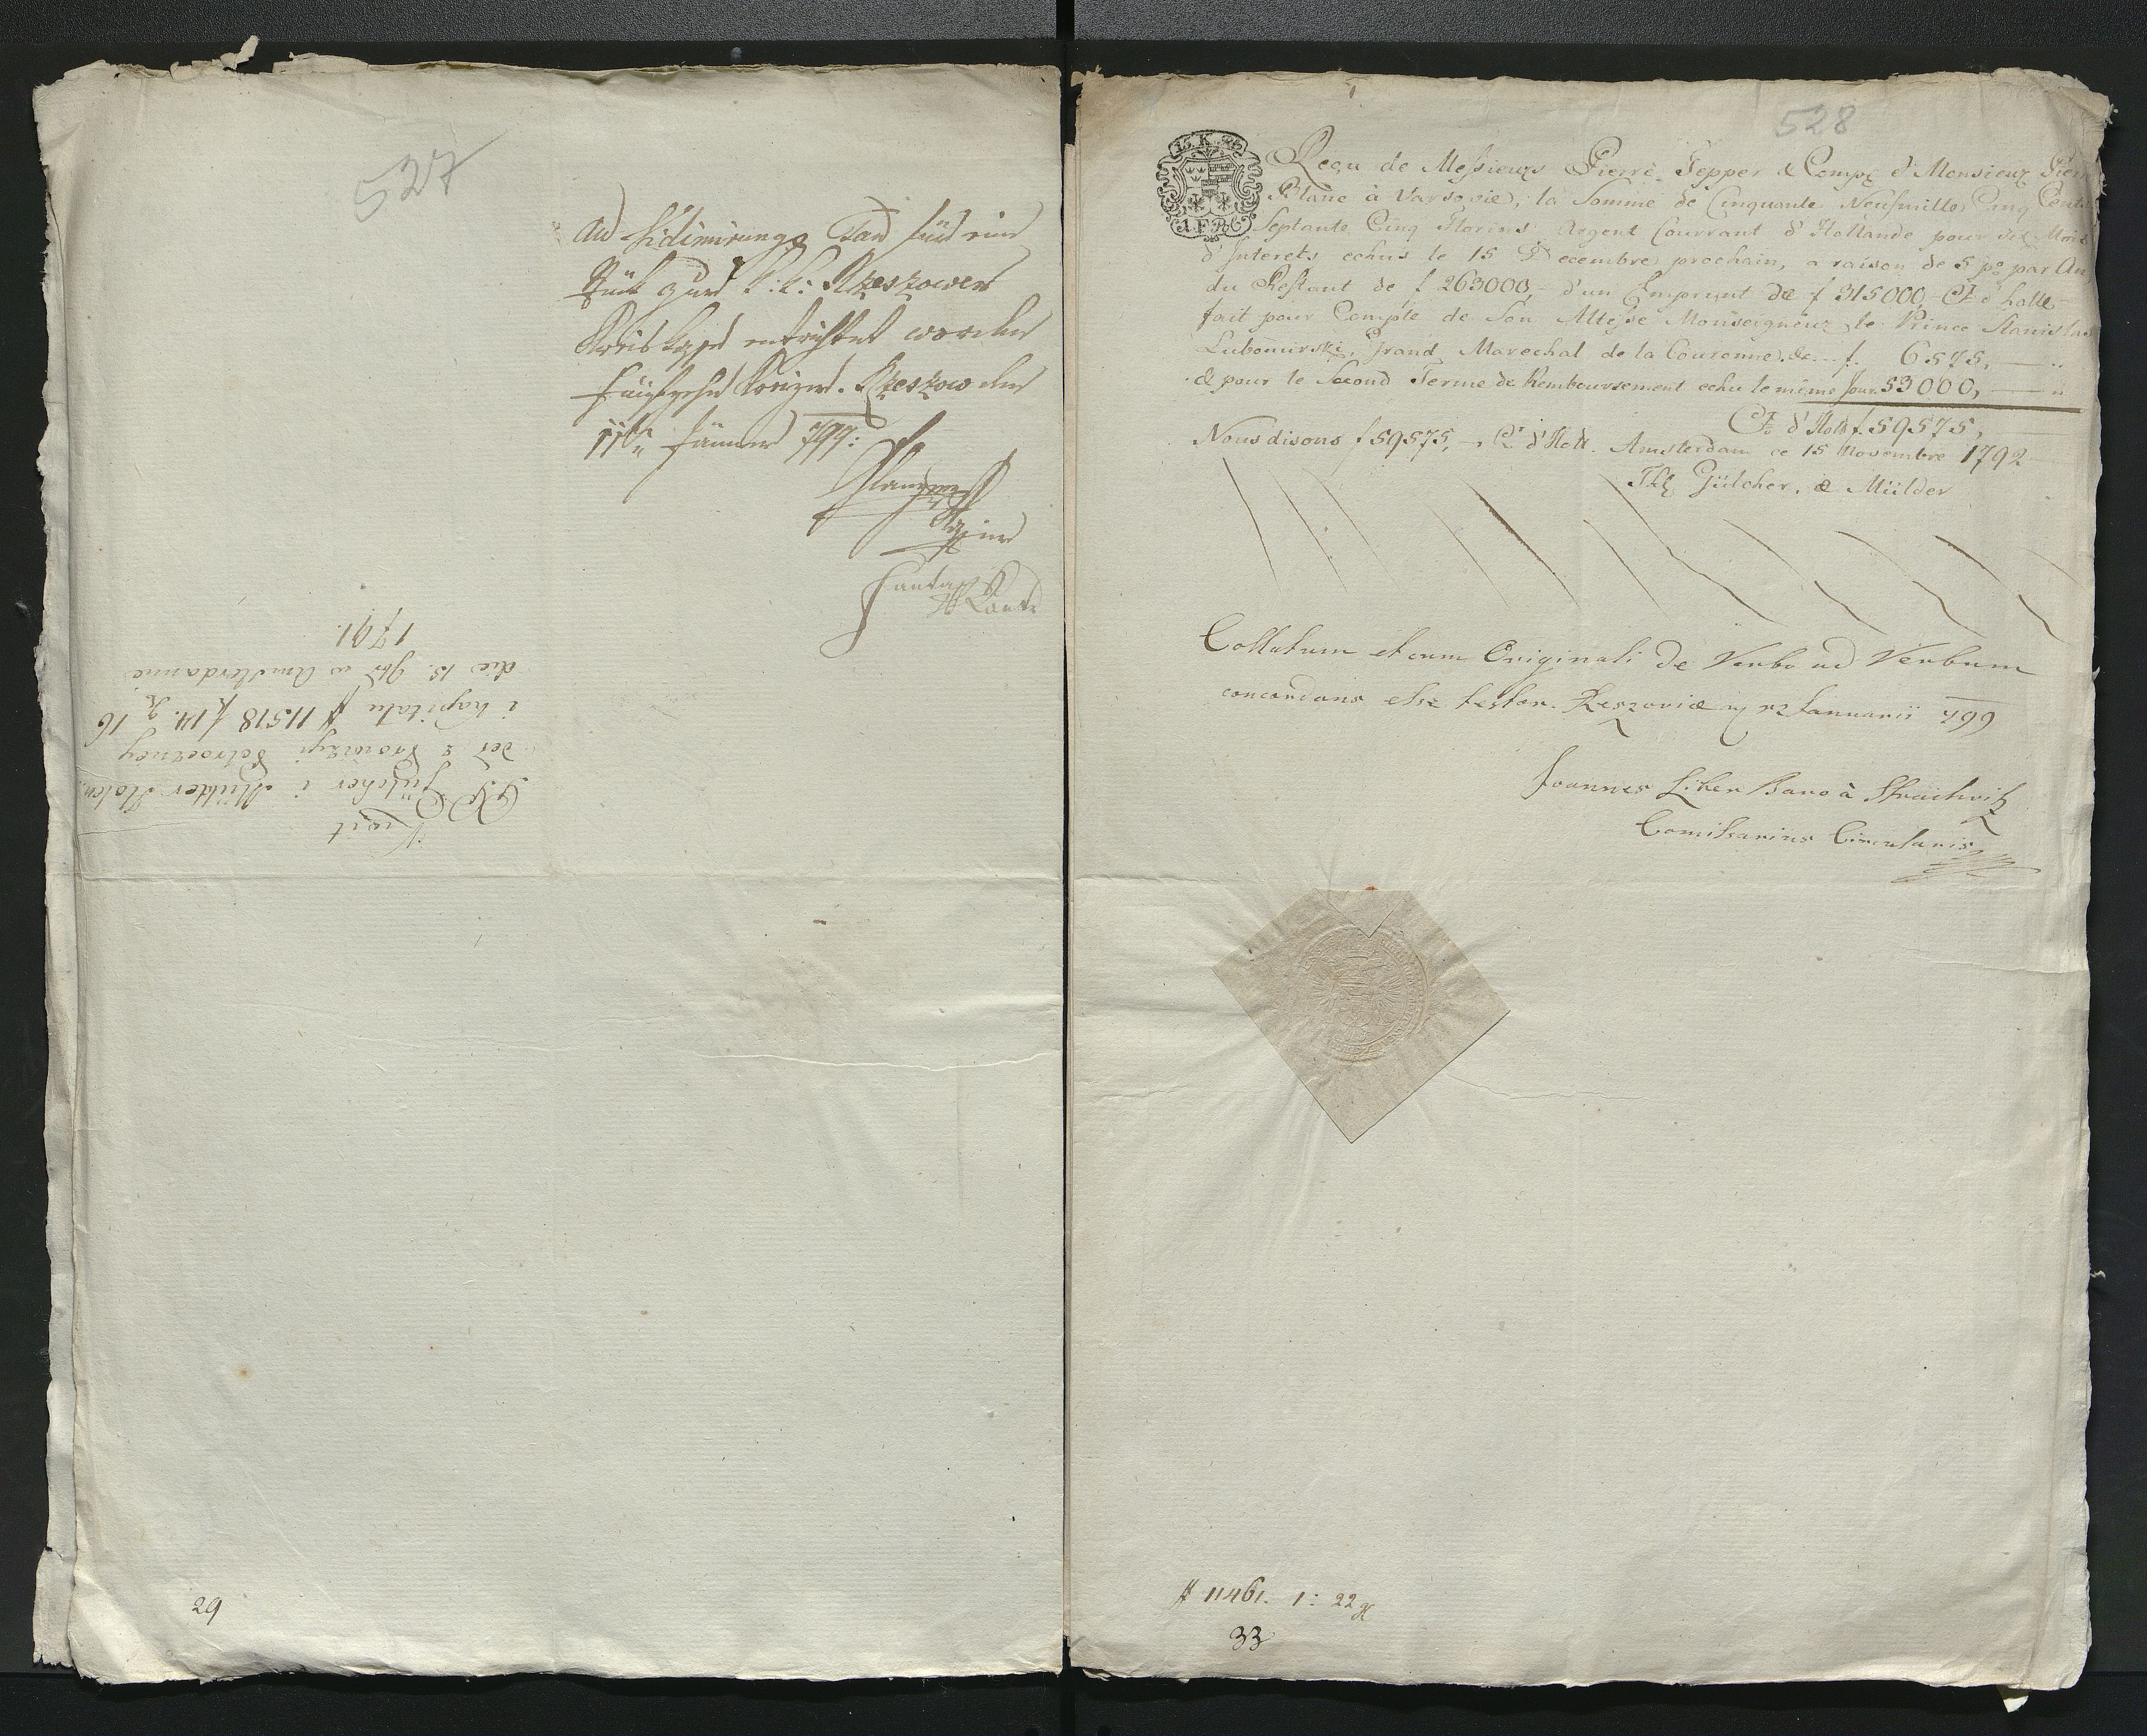 527
An Vidimirungs Tax sind vier
Stück zur k: k: Rzeszower
Kreiskassa entrichtet worden
fünfzehn Kreuzer. Rzeszow den
11ten Jänner 799:
Kwit
PP. Gülcher i Mülder Holen
der z Prowizyi Potroczney
i kapitału # 11518 f 14. g. 16
die 15. 9br w Amsterdamie
1791.
29
528
15. K. R.
Reçu de Messieurs Pierre Tepper & Compe & Monsieur Pierre
Blanc à Varsovie, la Somme de Cinquante Neufmille Cinq Cents
Septante Cinq Florins Argent Courrant d'Hollande pour six Mois
d'Interets echus le 15 Decembre prochain, a raison de 5 po par An
du Restant de f 263000,- d'un Emprunt de f 315000,- Ct d'holle
fait pour Compte de Son Altesse Monseigneur le Prince Stanislas
Lubomirski, Grand Marechal de la Couronne &c f. 6575, — "
& pour le Second Terme de Remboursement echu le même Jour 53000, — "
Ct d'Holl f. 59575, —
Nous disons f 59575, —, Ct d'Holl. Amsterdam ce 15 Novembre 1792
The Gülcher, & Mülder
Collatum et cum Originali de Verbo ad Verbum
concordans esse testor. Rzeszoviæ 12 Januarii 799
Joannes Liber Baro à Strachwitz
Comissarius Circularis
# 11461. 1: 22 g
33